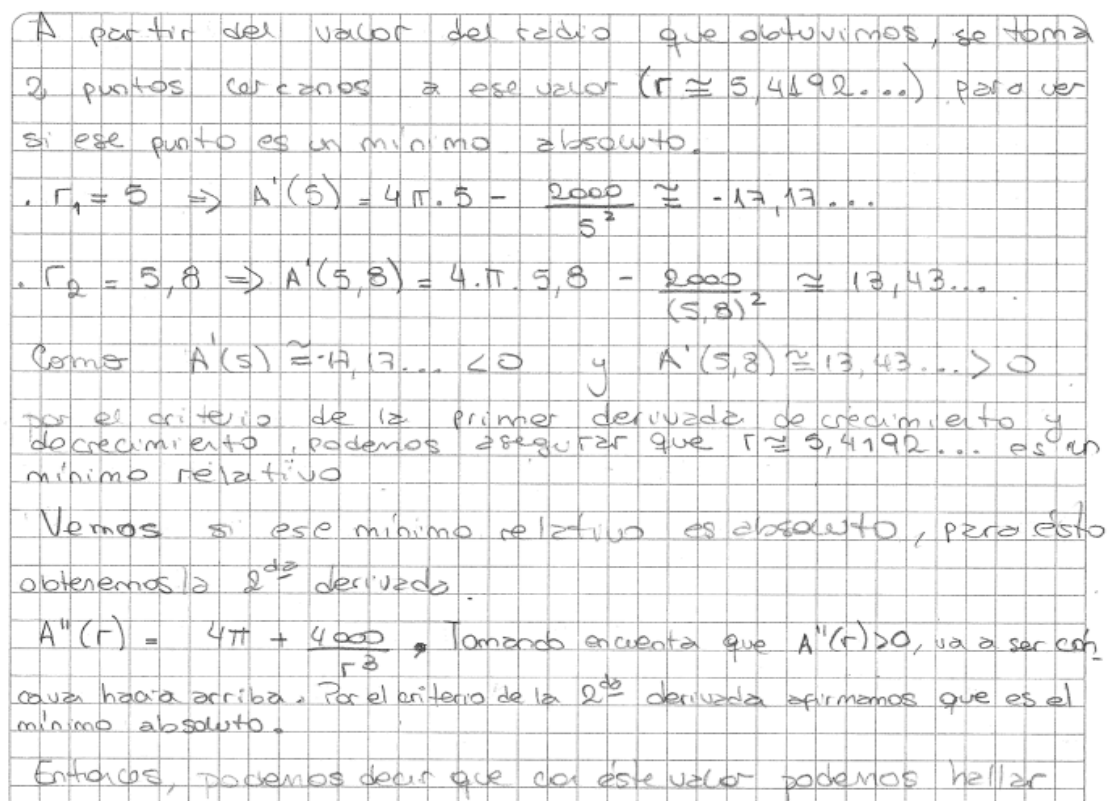 A partir del valor del radio que obtuvimos, se toma
2 puntos cercanos a ese valor (r ≅ 5,4192...) para ver
si ese punto es un mínimo absoluto.
. r₁ = 5 ⇒ A'(5) = 4π.5 - 2000/5² ≅ -17,17...
. r₂ = 5,8 ⇒ A'(5,8) = 4.π.5,8 - 2000/(5,8)² ≅ 13,43...
Como A'(5) ≅ -17,17... <0 y A'(5,8) ≅ 13,43... > 0
por el criterio de la primer derivada de crecimiento y
decrecimiento, podemos asegurar que r ≅ 5,4192... es un
mínimo relativo
Vemos si ese mínimo relativo es absoluto, para ésto
obtenemos la 2da derivada.
A"(r) = 4π + 4000/r³. Tomando encuenta que A"(r)>0, va a ser cón-
cava hacia arriba. Por el criterio de la 2da derivada afirmamos que es el
mínimo absoluto.
Entonces, podemos decir que con éste valor podemos hallar